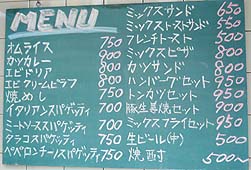 MENU
オムライス 750
カツカレー 900
エビドリア 800
エビクリームピラフ 800
焼めし 700
イタリアンスパゲッティ 700
ミートソーススパゲッティ 750
タラコスパゲッティ 750
ペペロンチーノスパゲッティ 750
ミックスサンド 650
ミックストーストサンド 550
フレンチトースト 500
ミックスピザ 800
カツサンド 800
ハンバーグセット 950
トンカツセット 950
豚生姜焼セット 900
ミックスフライセット 950
生ビール(中) 500
焼酎 500〜